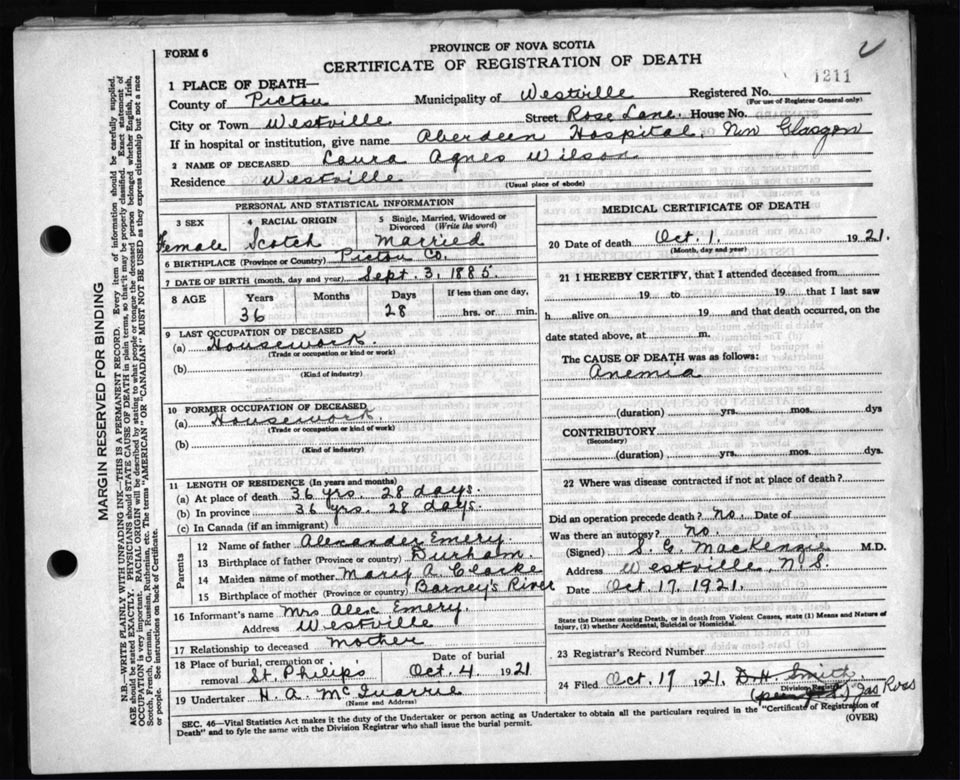 PROVINCE OF NOVA SCOTIA
FORM 6
CERTIFICATE OF REGISTRATION OF DEATH
1211
1 PLACE OF DEATH—
County of Pictou Municipality of Westville Registered No.
(For use of Registrar General only)
City or Town Westville Street Rose Lane. House No.
If in hospital or institution, give name Aberdeen Hospital, New Glasgow
2 NAME OF DECEASED Laura Agnes Wilson
Residence Westville
(Usual place of abode)
PERSONAL AND STATISTICAL INFORMATION
3 SEX 4 RACIAL ORIGIN 5 Single, Married, Widowed or Divorced (Write the word)
Female Scotch Married
6 BIRTHPLACE (Province or Country) Pictou Co.
7 DATE OF BIRTH (month, day and year) Sept. 3, 1885.
8 AGE Years Months Days If less than one day,
36 28 hrs. or min.
9 LAST OCCUPATION OF DECEASED
(a) Housework.
(Trade or occupation or kind or work)
(b)
(Kind of industry)
10 FORMER OCCUPATION OF DECEASED
(a) Housework
(Trade or occupation or kind of work)
(b)
(Kind of industry)
11 LENGTH OF RESIDENCE (In years and months)
(a) At place of death 36 yrs. 28 days.
(b) In province 36 yrs. 28 days.
(c) In Canada (if an immigrant)
Parents
12 Name of father Alexander Emery.
13 Birthplace of father (Province or country) Durham.
14 Maiden name of mother Mary A. Clarke
15 Birthplace of mother (Province or country) Barney's River
16 Informant's name Mrs Alex Emery.
Address Westville
17 Relationship to deceased mother
18 Place of burial, cremation or Date of burial
removal St. Philip's Oct. 4. 1921
19 Undertaker H. A. McQuarrie
(Name and Address)
MEDICAL CERTIFICATE OF DEATH
20 Date of death Oct. 1. 1921.
(Month, day and year)
21 I HEREBY CERTIFY, that I attended deceased from
19 to 19 that I last saw
h alive on 19 and that death occurred, on the
date stated above, at m.
The CAUSE OF DEATH was as follows:
Anemia
(duration) yrs. mos. dys
CONTRIBUTORY
(Secondary)
(duration) yrs. mos. dys.
22 Where was disease contracted if not at place of death?
Did an operation precede death? no. Date of
Was there an autopsy? no.
(Signed) S. G. MacKenzie M.D.
Address Westville, N.S.
Date Oct. 17, 1921.
State the Disease causing Death, or in death from Violent Causes, state (1) Means and Nature of
Injury, (2) whether Accidental, Suicidal or Homicidal.
23 Registrar's Record Number
24 Filed Oct. 17 1921. D. H. Smith
Division Registrar
Jas Ross
SEC. 46—Vital Statistics Act makes it the duty of the Undertaker or person acting as Undertaker to obtain all the particulars required in the "Certificate of Registration of
Death" and to fyle the same with the Division Registrar who shall issue the burial permit. (OVER)
MARGIN RESERVED FOR BINDING
N.B.—WRITE PLAINLY WITH UNFADING INK—THIS IS A PERMANENT RECORD. Every item of information should be carefully supplied.
AGE should be stated EXACTLY. PHYSICIANS should STATE CAUSE OF DEATH in plain terms, so that it may be properly classified. Exact statement of
OCCUPATION is very important. RACIAL ORIGIN will be described by stating to what people or tongue the deceased person belonged whether English, Irish,
Scotch, French, German, Russian, Ruthenian, etc. The terms "AMERICAN" OR "CANADIAN" MUST NOT BE USED as they express citizenship but not a race
or people. See instructions on back of Certificate.